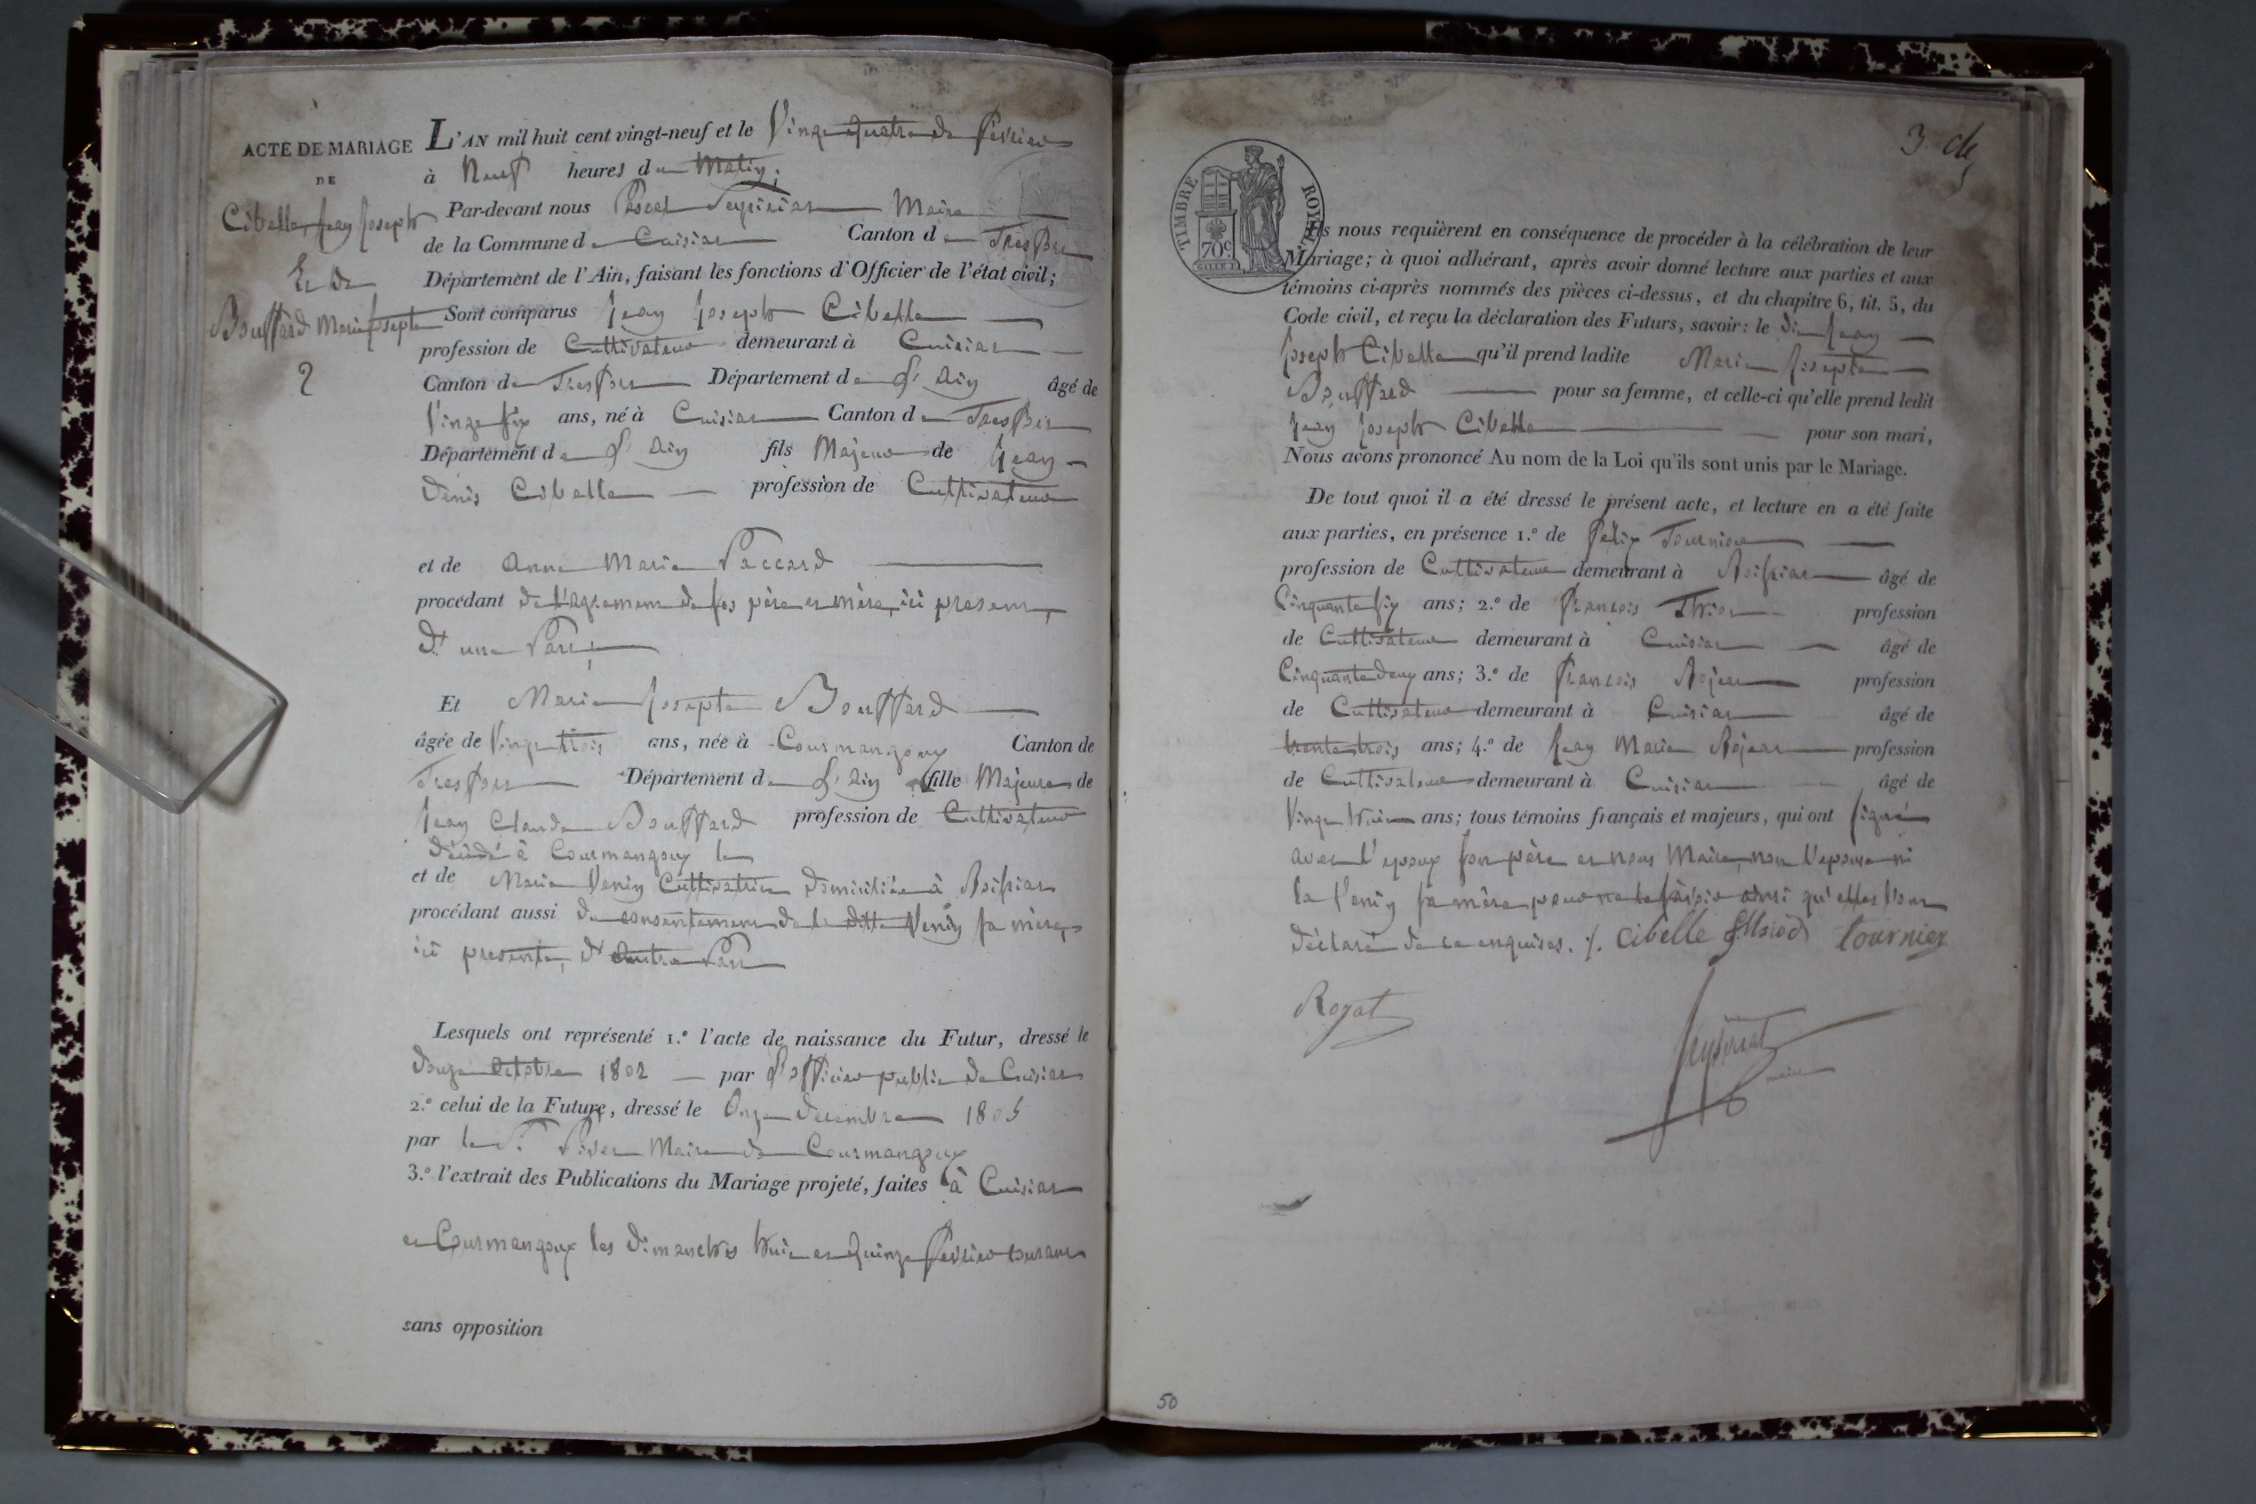 ACTE DE MARIAGE
DE
Cibelle, Jean Joseph
Et de
Bouffard Marie Josepte
2
L'AN mil huit cent vingt-neuf et le Vingt quatre de fevrier
à Neuf heures du Matin;
Par-devant nous Pascal Maire
de la Commune de Cuisiat Canton de Treffort
Département de l'Ain, faisant les fonctions d'Officier de l'état civil;
Sont comparus Jean Joseph Cibelle
profession de Cultivateur demeurant à Cuisiat
Canton de Treffort Département de L'ain âgé de
Vingt six ans, né à Cuisiat Canton de Treffort
Département de L'ain fils Majeur de Jean
Denis Cibelle profession de Cultivateur
et de Anne Marie Paccard
procédant de l'agrement de ses père et mère, ici present,
d'une Part;
Et Marie Josepte Bouffard
âgée de Vingt trois ans, née à Courmangoux Canton de
Treffort Département de L'ain fille Majeure de
Jean Claude Bouffard profession de Cultivateur
décédé à Courmangoux le
et de Marie Venin Cultivatrice domiciliée à
procédant aussi du consentement de la ditte Venin sa mère,
ici presente, d'autre Part
Lesquels ont représenté 1.º l'acte de naissance du Futur, dressé le
douze octobre 1802 par L'officier public de Cuisiat
2.º celui de la Future, dressé le Onze decembre 1805
par le Sr. Maire de Courmangoux
3.º l'extrait des Publications du Mariage projeté, faites à Cuisiat
et Courmangoux les dimanches huit et quinze fevrier courant
sans opposition
3
TIMBRE ROYAL
70c
Ils nous requièrent en conséquence de procéder à la célébration de leur
Mariage; à quoi adhérant, après avoir donné lecture aux parties et aux
témoins ci-après nommés des pièces ci-dessus, et du chapitre 6, tit. 5, du
Code civil, et reçu la déclaration des Futurs, savoir: le dit Jean
Joseph Cibelle qu'il prend ladite Marie Josepte
Bouffard pour sa femme, et celle-ci qu'elle prend ledit
Jean Joseph Cibelle pour son mari,
Nous avons prononcé Au nom de la Loi qu'ils sont unis par le Mariage.
De tout quoi il a été dressé le présent acte, et lecture en a été faite
aux parties, en présence 1.º de Félix Tournier
profession de Cultivateur demeurant à âgé de
Cinquante six ans; 2.º de François profession
de Cultivateur demeurant à Cuisiat âgé de
Cinquante deux ans; 3.º de François profession
de Cultivateur demeurant à Cuisiat âgé de
trente trois ans; 4.º de Jean Marie profession
de Cultivateur demeurant à Cuisiat âgé de
Vingt huit ans; tous témoins français et majeurs, qui ont signé
avec l'epoux son père et nous Maire, non l'epouse ni
la Venin sa mère pour ne le savoir ainsi qu'elles l'ont
déclaré de ce enquises. ·/. Cibelle tournier
Royat
maire
50